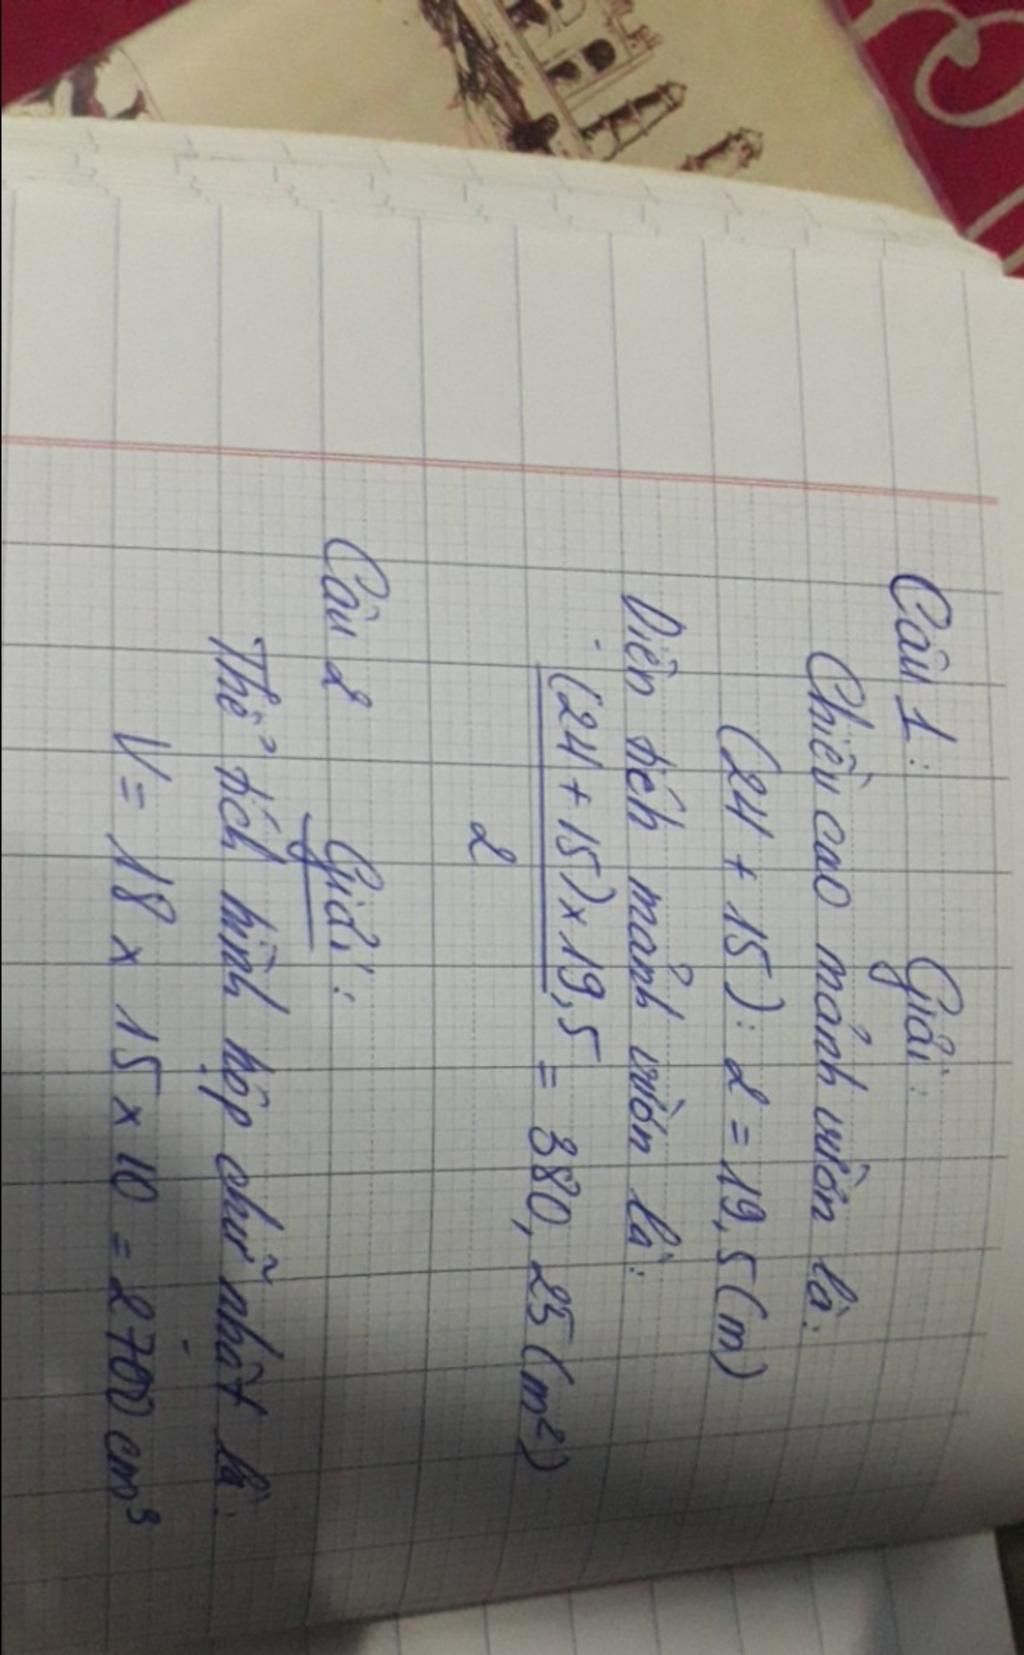 Câu 1: Giải:
Chiều cao mảnh vườn là:
(24 + 15) : 2 = 19,5 (m)
Diện tích mảnh vườn là:
(24 + 15) x 19,5 = 380,25 (m²)
2
Câu 2 Giải:
Thể tích hình hộp chữ nhật là:
V = 18 x 15 x 10 = 2700 cm³